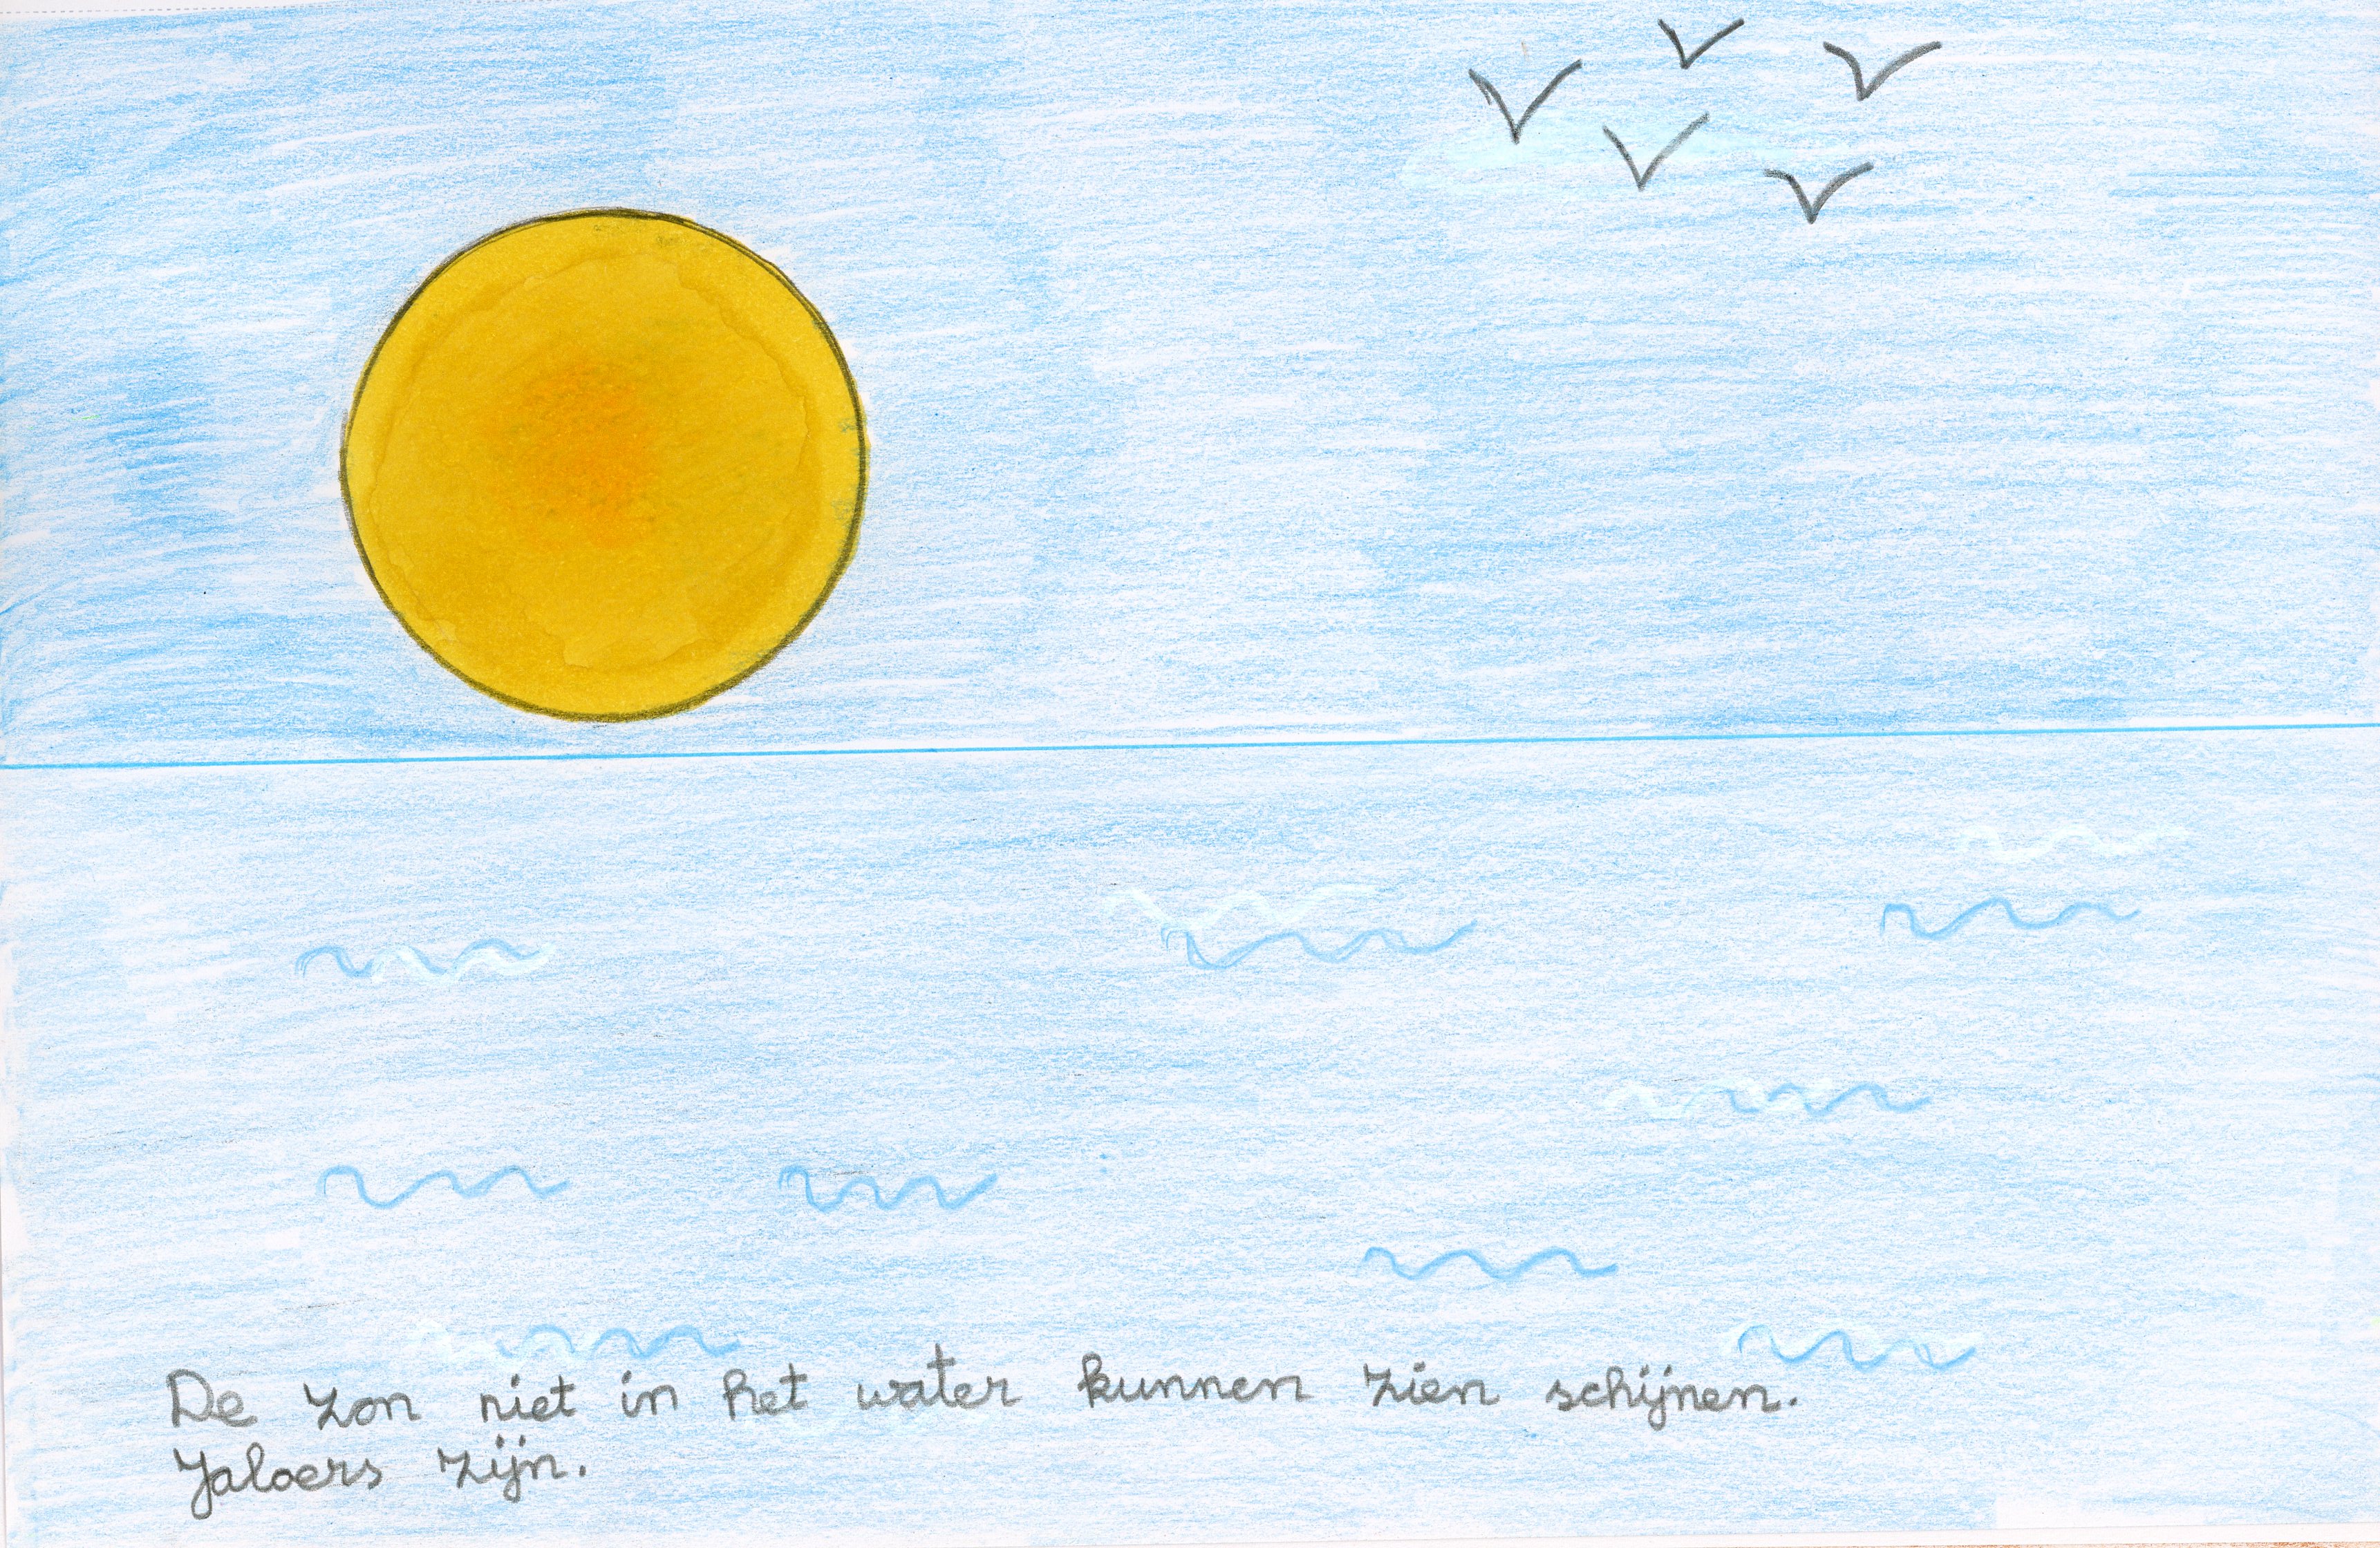 De zon niet in het water kunnen zien schijnen.
Jaloers zijn.